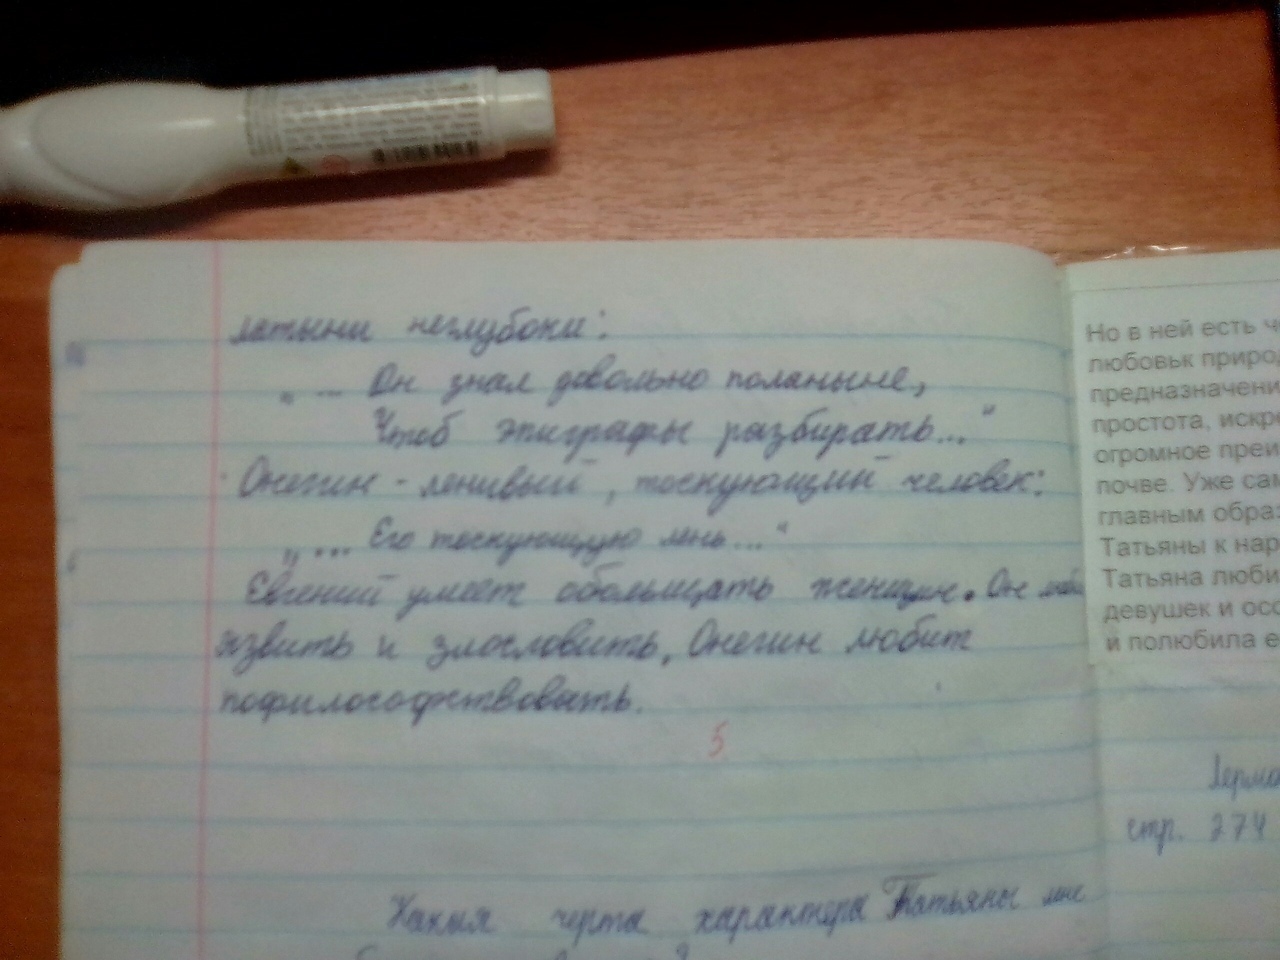 латыни неглубоки:
„ ... Он знал довольно полатыне,
Чтоб эпиграфы разбирать..."
Онегин - ленивый, тоскующий человек:
„ ... Его тоскующую лень..."
Евгений умеет обольщать женщин. Он
язвить и злословить. Онегин любит
пофилософствовать.
5
Какая черта характера Татьяны мне
Но в ней есть
любовьк
простота,
огромное
почве. Уже
главным
Татьяны к
Татьяна
девушек и
и полюбила
стр. 274